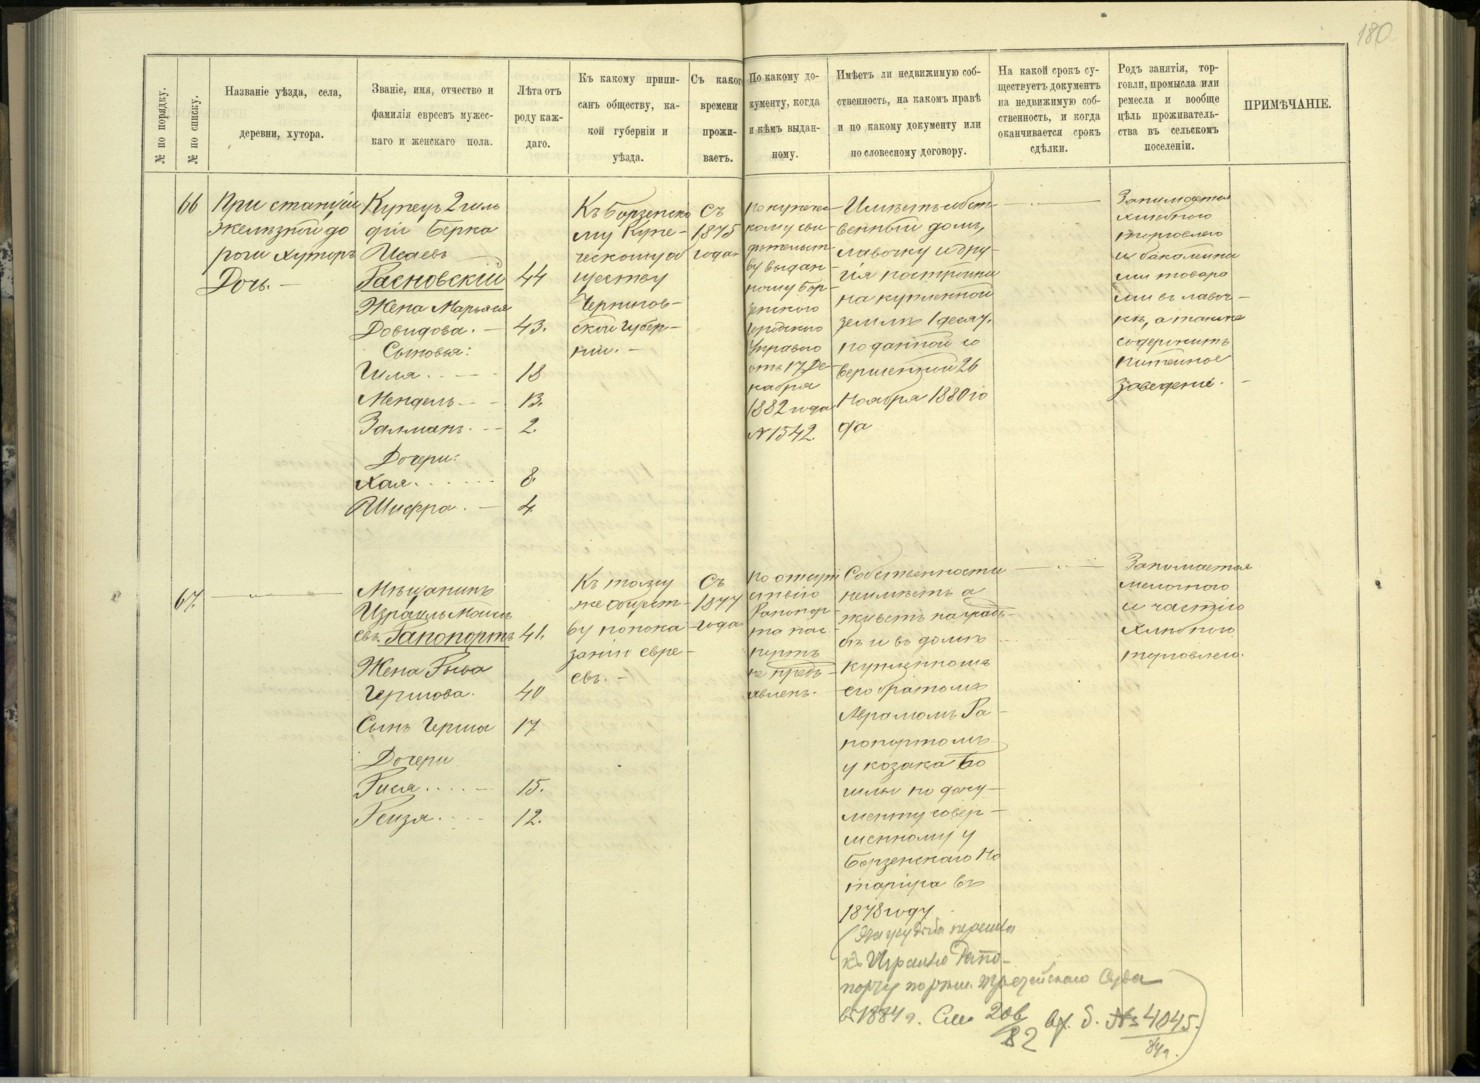 180
№ по порядку.
№ по списку.
Названіе уѣзда, села,
деревни, хутора.
Званіе, имя, отчество и
фамилія евреевъ мужес-
каго и женскаго пола.
Лѣта отъ
роду каж-
даго.
Къ какому припи-
санъ обществу, ка-
кой губерніи и
уѣзда.
Съ какого
времени
прожи-
ваетъ.
По какому до-
кументу, когда
и кѣмъ выдан-
ному.
Имѣетъ ли недвижимую соб-
ственность, на какомъ правѣ
и по какому документу или
по словесному договору.
На какой срокъ су-
ществуетъ документъ
на недвижимую соб-
ственность, и когда
оканчивается срокъ
сдѣлки.
Родъ занятія, тор-
говли, промысла или
ремесла и вообще
цѣль проживатель-
ства въ сельскомъ
поселеніи.
ПРИМѢЧАНІЕ.
66
При станціи
желѣзной до
роги хуторъ
Дочь. —
Купецъ 2 гиль
діи Берка
Исаевъ
Расновскій 44
Жена Марьяся
Довидова. — 43.
Сыновья:
Гиля 18
Мендель 13.
Залманъ 2.
Дочери:
Хая 8
Шифра. — 4
Къ Борзенско
му Купе-
ческому об
ществу
Чернигов-
ской Губер-
ніи. —
Съ
1875
года
по купечес-
кому сви-
дѣтельст-
ву выдан-
ному Бор-
зенского
Городского
Управою
отъ 17 Де-
кабря
1882 года
№ 1542
Имѣетъ собст-
венный домъ,
лавочку и дру-
гія постройки
на купленной
землѣ 1 десят.
по данной со
вершенной 26
Ноября 1880 го
да
Занимается
хлѣбною
торговлею
и бакалейны
ми товара
ми въ лавоч-
кѣ, а также
содержитъ
питейное
заведеніе. —
67
Мѣщанинъ
Израиль Моисе
евъ Рапопортъ 41.
Жена Рыва
Гершова. 40
Сынъ Герша 17
Дочери
Рися 15.
Рейзя 12.
Къ тому
же общест-
ву по пока-
занію евре-
евъ. —
Съ
1877
года
по
Рапопор-
та пас-
портъ
не предъ-
явленъ.
Собственности
неимѣетъ а
живетъ
бѣ и въ домѣ
купленномъ
его братомъ
Абрамомъ Ра-
попортомъ
у козака Бо
шлы по доку-
менту совер-
шенному у
Борзенскаго Но
таріуса въ
1878 году.
Занимается
мелочною
и частію
хлѣбною
торговлею.
Эта усадьба перешла
къ Израилю Рапо-
порту по рѣш. Третейскаго Суда
въ 1884 г. См. 82 № 4045.
84 г.